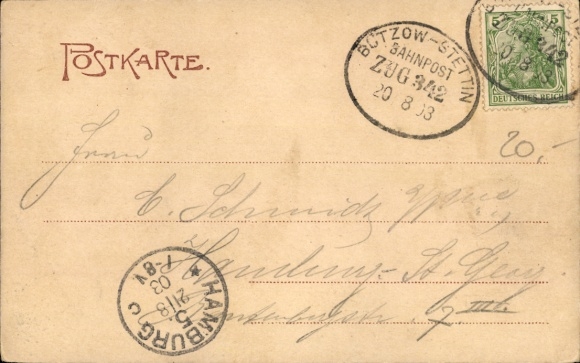 POSTKARTE.
BÜTZOW-STETTIN
BAHNPOST
ZUG 342
20 8 03
5 5
DEUTSCHES REICH
ZUG 342
20 8
20,-
Frau
C. Schmidt
Hamburg-St. Georg
III.
HAMBURG
* 5 c
21 8
03
7-8 V